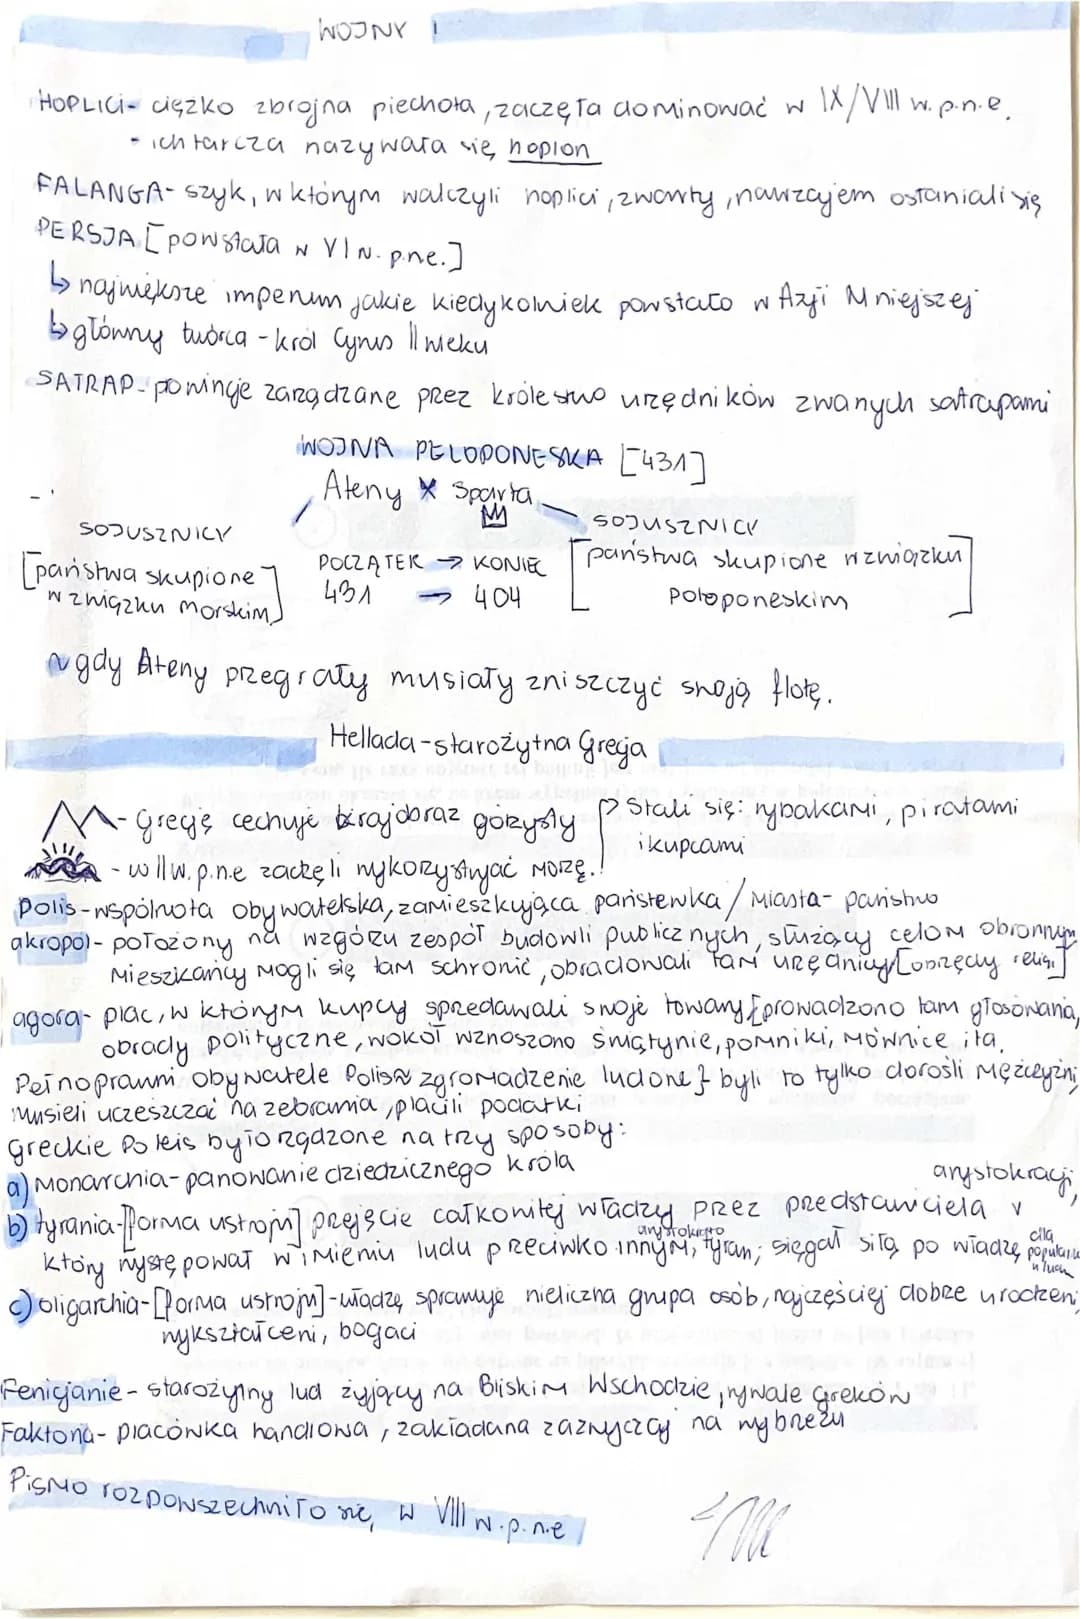 WOJNY
HOPLICI- ciężko zbrojna piechota, zaczęła dominować w IX/VIII w. p.n.e.
- ich tarcza nazywała się hoplon
FALANGA- szyk, w którym walczyli hoplici, zwarty, nawzajem osłaniali się
PERSJA [powstała w VI w. p.n.e.]
↳ największe imperium jakie kiedykolwiek powstało w Azji Mniejszej
↳ główny twórca - król Cyrus II wieku
SATRAP- prowincje zarządzane przez królestwo urzędników zwanych satrapami
WOJNA PELOPONESKA [431]
Ateny X Sparta
SOJUSZNICY
[państwa skupione w związku morskim]
POCZĄTEK → KONIEC
431 → 404
SOJUSZNICY
[państwa skupione w związku poloponeskim]
~ gdy Ateny przegrały musiały zniszczyć swoją flotę.
Hellada - starożytna Grecja
- Grecję cechuje krajobraz górzysty
- w II w. p.n.e zaczęli wykorzystywać morze.
→ Stali się: rybakami, piratami
i kupcami
Polis - wspólnota obywatelska, zamieszkująca państewka / Miasta - państwo
akropol - położony na wzgórzu zespół budowli publicznych, służący celom obronnym
Mieszkańcy mogli się tam schronić, obradowali tam urzędnicy [obrzędy religi.]
agora - plac, w którym kupcy spredawali swoje towary [prowadzono tam głosowania,
obrady polityczne, wokół wznoszono świątynie, pomniki, mównice itd.
Pełnoprawni obywatele Polis zgromadzenie ludowe } byli to tylko dorośli mężczyźni,
musieli uczęszczać na zebrania, płacili podatki
Greckie Poleis było rządzone na trzy sposoby:
a) Monarchia - panowanie dziedzicznego króla
b) tyrania - [forma ustroju] przejęcie całkowitej władzy przez przedstawiciela arystokracji,
który występował w imieniu ludu przeciwko innym arystokrato, tyran; sięgał siłą po władzę dla popularn. u ludu
c) oligarchia - [forma ustroju] - władzę sprawuje nieliczna grupa osób, najczęściej dobrze urodzeni,
wykształceni, bogaci
Fenicjanie - starożytny lud żyjący na Bliskim Wschodzie, rywale Greków
Faktoria - placówka handlowa, zakładana zazwyczaj na wybrzeżu
Pismo rozpowszechniło się w VIII w. p.n.e